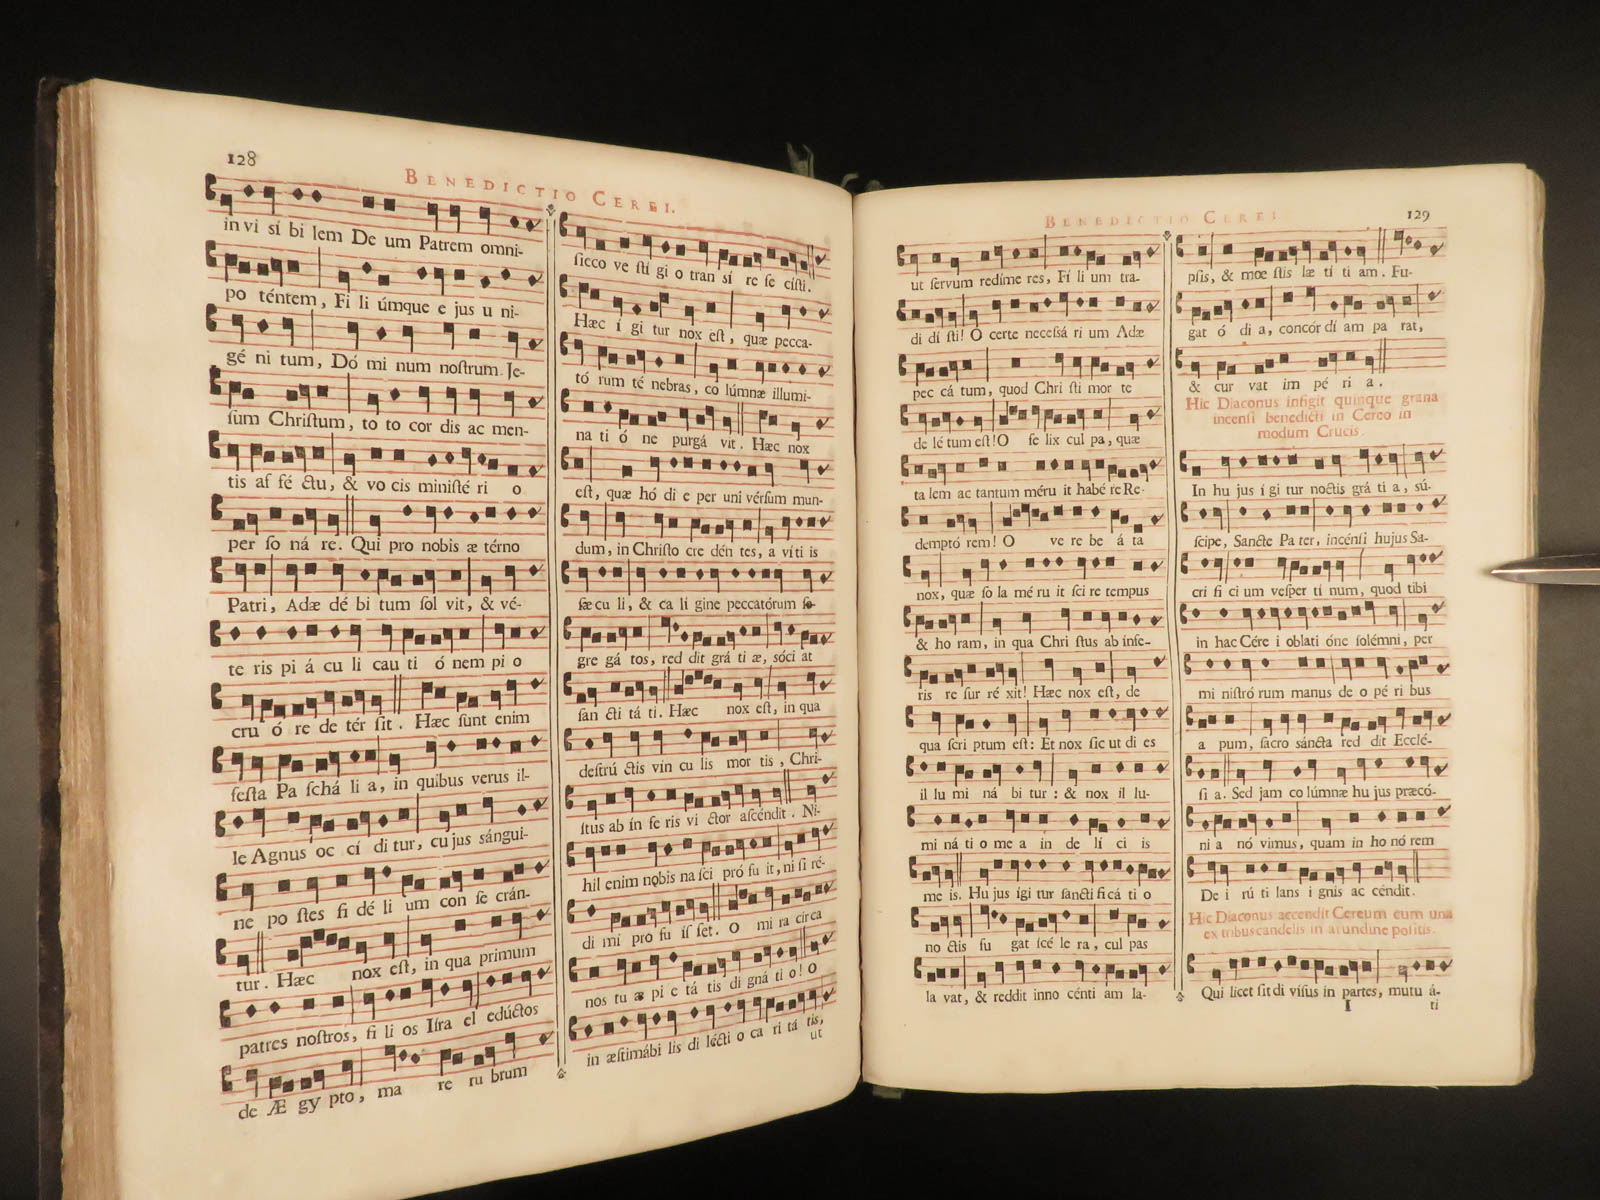 128
BENEDICTIO CEREI.
in vi sí bi lem De um Patrem omni-
po téntem, Fi li úmque e jus u ni-
gé ni tum, Dó mi num noſtrum Je-
ſum Chriſtum, to to cor dis ac men-
tis af fé ctu, & vo cis miniſté ri o
per ſo ná re. Qui pro nobis æ térno
Patri, Adæ dé bi tum ſol vit, & vé-
te ris pi á cu li cau ti ó nem pi o
cru ó re de tér ſit. Hæc ſunt enim
feſta Pa ſchá li a, in quibus verus il-
le Agnus oc cí di tur, cu jus sángui-
ne po ſtes fi dé li um con ſe crán-
tur. Hæc nox eſt, in qua primum
patres noſtros, fi li os Iſra el edúctos
de Æ gy pto, ma re ru brum
ſicco ve ſti gi o tran sí re fe ciſti.
Hæc í gi tur nox eſt, quæ pecca-
tó rum té nebras, co lúmnæ illumi-
na ti ó ne purgá vit. Hæc nox
eſt, quæ hó di e per uni vérſum mun-
dum, in Chriſto cre dén tes, a víti is
ſæ cu li, & ca lí gine peccatórum ſe-
gre gá tos, red dit grá ti æ, sóci at
ſan cti tá ti. Hæc nox eſt, in qua
deſtrú ctis vin cu lis mor tis, Chri-
ſtus ab ín fe ris vi ctor aſcéndit. Ni-
hil enim nobis na ſci pró fu it, ni ſi ré-
di mi pro fu íſ ſet. O mi ra circa
nos tu æ pi e tá tis di gná ti o! O
in æſtimábi lis di lécti o ca ri tá tis,
ut
BENEDICTIO CEREI
129
ut ſervum redíme res, Fí li um tra-
di dí ſti! O certe neceſsá ri um Adæ
pec cá tum, quod Chri ſti mor te
de lé tum eſt! O fe lix cul pa, quæ
ta lem ac tantum méru it habé re Re-
demptó rem! O ve re be á ta
nox, quæ ſo la mé ru it ſci re tempus
& ho ram, in qua Chri ſtus ab ínfe-
ris re ſur ré xit! Hæc nox eſt, de
qua ſcri ptum eſt: Et nox ſic ut di es
il lu mi ná bi tur: & nox il lu-
mi ná ti o me a in de lí ci is
me is. Hu jus ígi tur ſancti fi cá ti o
no ctis fu gat ſcé le ra, cul pas
la vat, & reddit inno cénti am la-
pſis, & mœ ſtis læ tí ti am. Fu-
gat ó di a, concór dí am pa rat,
& cur vat im pé ri a.
Hic Diaconus infigit quinque grana
incenſi benedicti in Cereo in
modum Crucis.
In hu jus í gi tur noctis grá ti a, sú-
ſcipe, Sancte Pa ter, incénſi hujus Sa-
cri fí ci um veſper tí num, quod tibi
in hac Cére i oblati óne ſolémni, per
mi niſtró rum manus de o pé ri bus
a pum, ſacro sáncta red dit Ecclé-
ſi a. Sed jam co lúmnæ hu jus præcó-
ni a nó vimus, quam in ho nó rem
De i rú ti lans i gnis ac céndit.
Hic Diaconus accendit Cereum cum una
ex tribus candelis in arundine poſitis.
Qui licet ſit di víſus in partes, mutu á-
I
ti